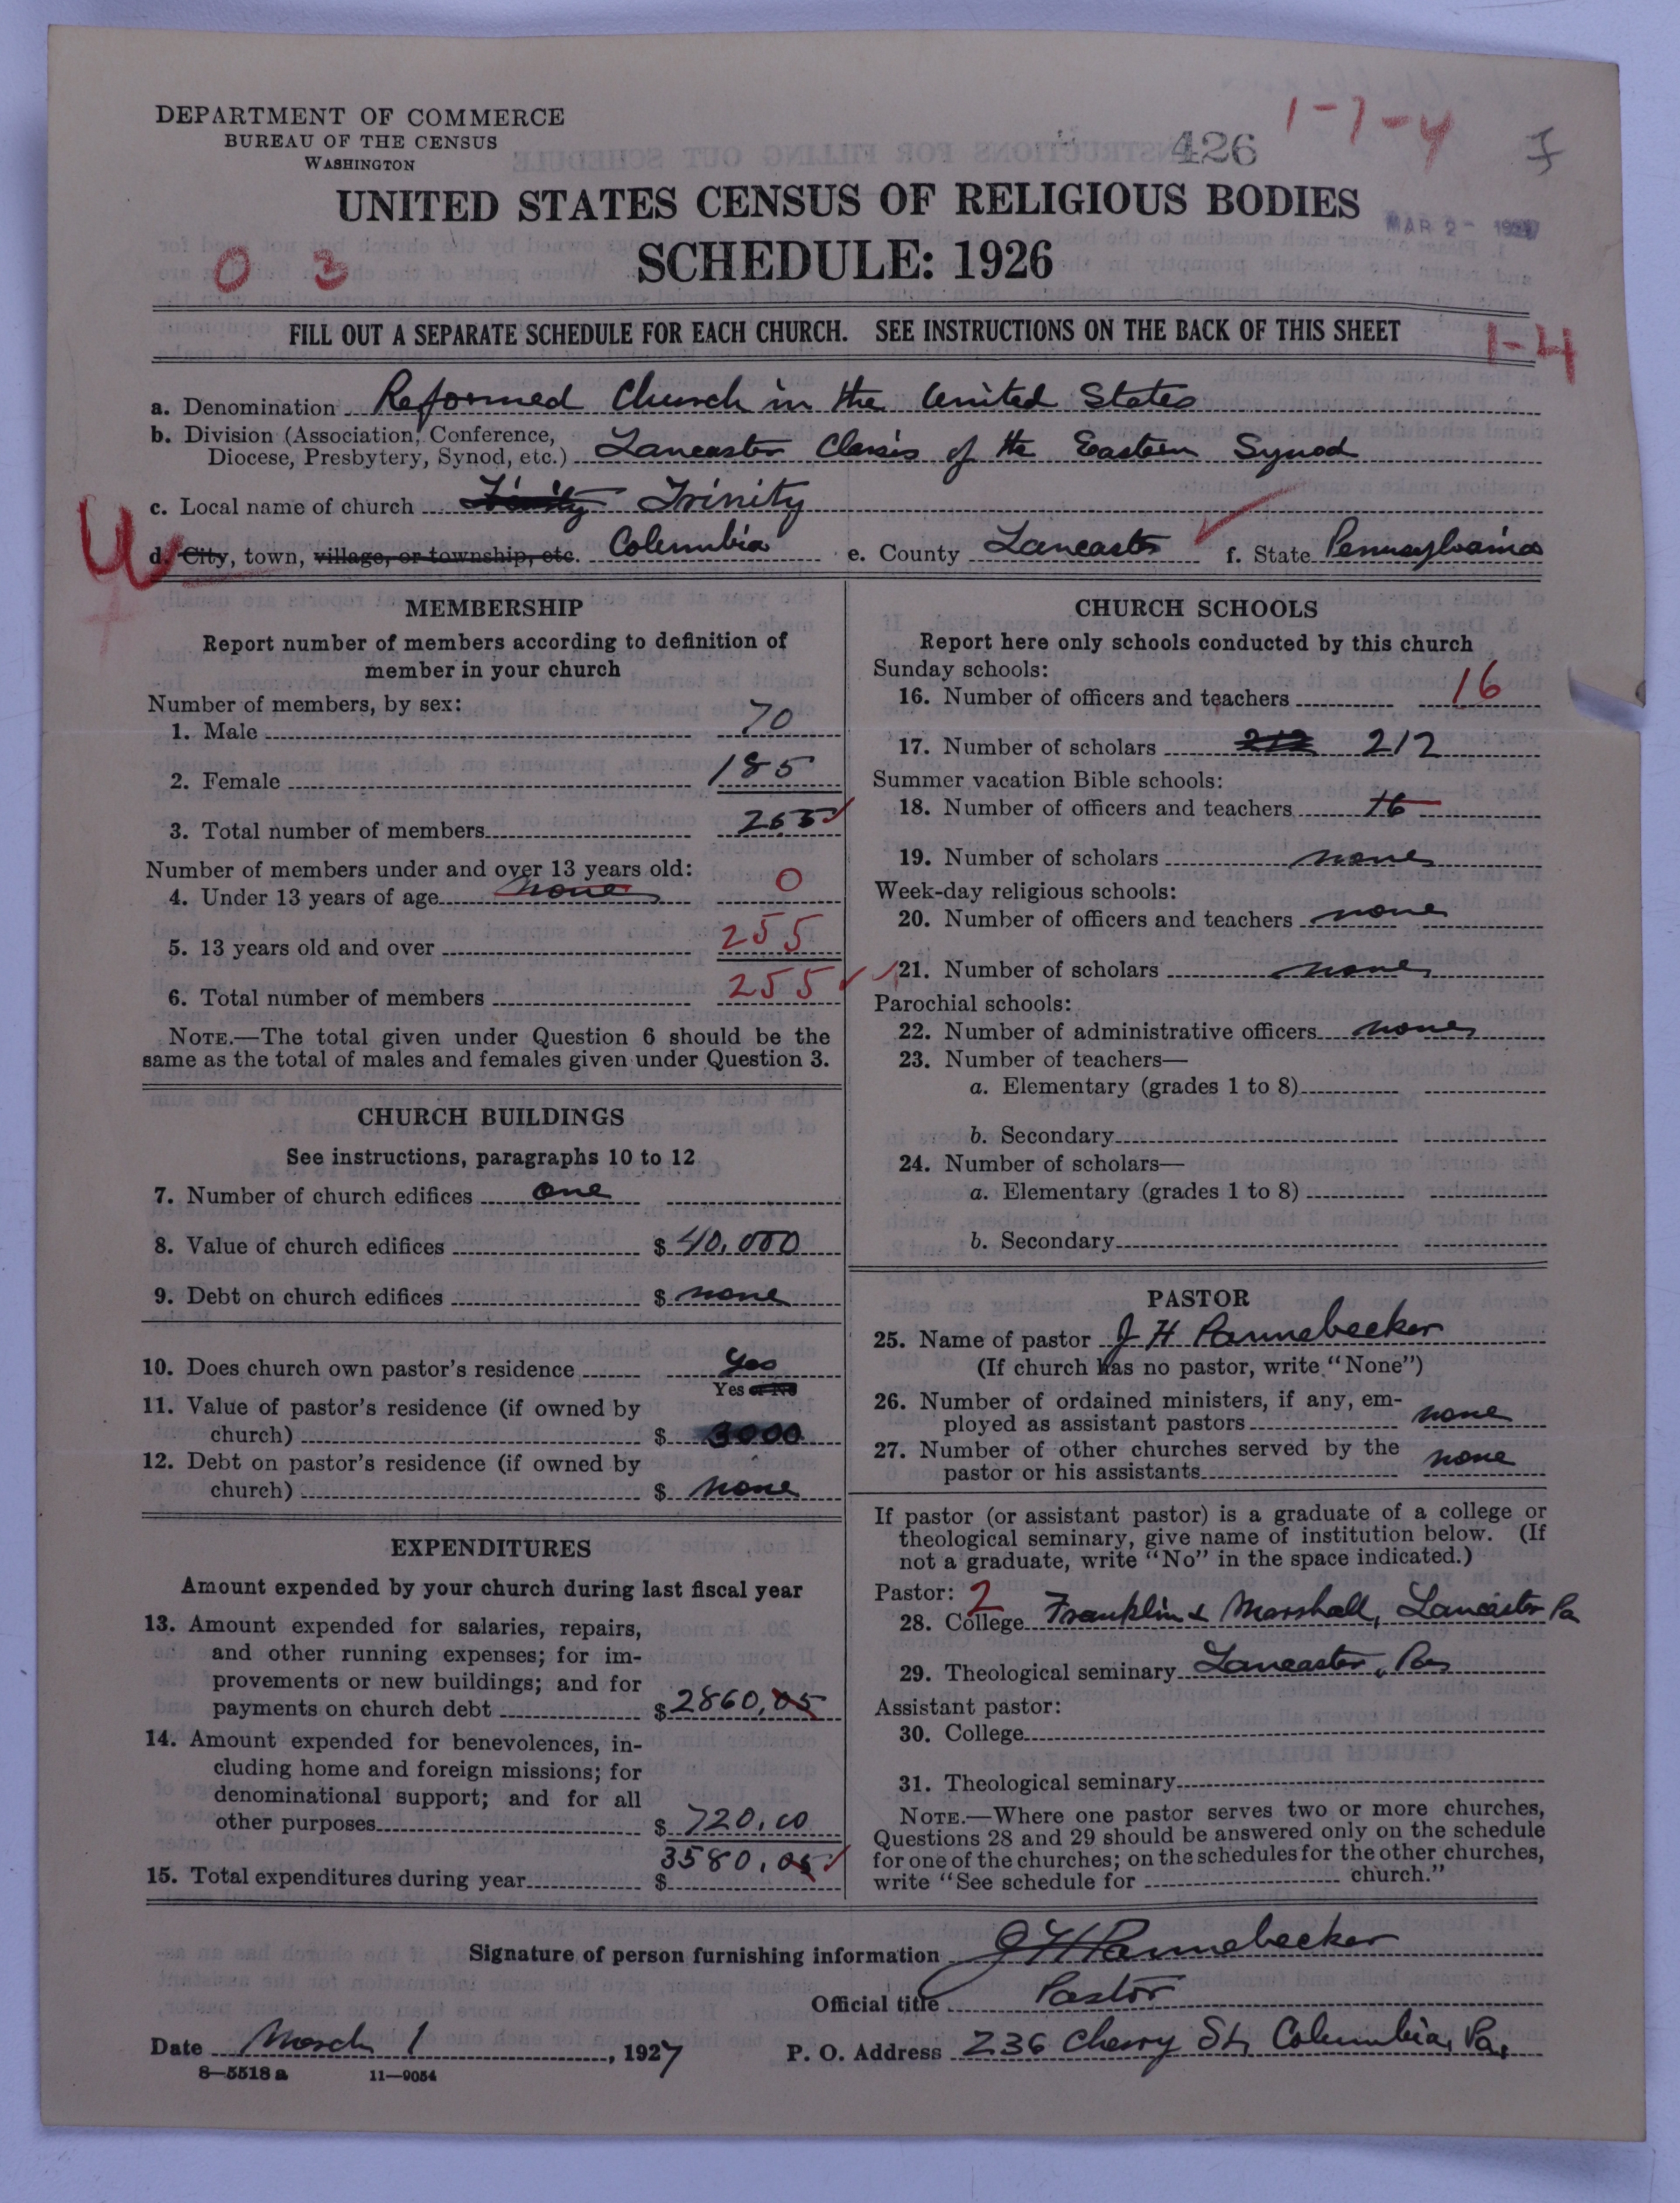 DEPARTMENT OF COMMERCE
BUREAU OF THE CENSUS
WASHINGTON
426
1-7-4
MAR 2 - 1927
UNITED STATES CENSUS OF RELIGIOUS BODIES
SCHEDULE: 1926
0 3
FILL OUT A SEPARATE SCHEDULE FOR EACH CHURCH. SEE INSTRUCTIONS ON THE BACK OF THIS SHEET
1-4
a. Denomination Reformed Church in the United States
b. Division (Association, Conference,
Diocese, Presbytery, Synod, etc.) Lancaster Classis of the Eastern Synod
c. Local name of church Trinity Trinity
d. City, town, village, or township, etc. Columbia e. County Lancaster f. State Pennsylvania
MEMBERSHIP
Report number of members according to definition of
member in your church
Number of members, by sex:
1. Male 70
2. Female 185
3. Total number of members 255
Number of members under and over 13 years old:
4. Under 13 years of age none 0
5. 13 years old and over 255
6. Total number of members 255
NOTE.—The total given under Question 6 should be the
same as the total of males and females given under Question 3.
CHURCH BUILDINGS
See instructions, paragraphs 10 to 12
7. Number of church edifices one
8. Value of church edifices $ 40,000
9. Debt on church edifices $ none
10. Does church own pastor's residence Yes
Yes or No
11. Value of pastor's residence (if owned by
church) $ 3000
12. Debt on pastor's residence (if owned by
church) $ none
EXPENDITURES
Amount expended by your church during last fiscal year
13. Amount expended for salaries, repairs,
and other running expenses; for im-
provements or new buildings; and for
payments on church debt $ 2860,05
14. Amount expended for benevolences, in-
cluding home and foreign missions; for
denominational support; and for all
other purposes $ 720.00
15. Total expenditures during year $ 3580.05
CHURCH SCHOOLS
Report here only schools conducted by this church
Sunday schools:
16. Number of officers and teachers 16
17. Number of scholars 212 212
Summer vacation Bible schools:
18. Number of officers and teachers 16
19. Number of scholars none
Week-day religious schools:
20. Number of officers and teachers none
21. Number of scholars none
Parochial schools:
22. Number of administrative officers none
23. Number of teachers—
a. Elementary (grades 1 to 8)
b. Secondary
24. Number of scholars—
a. Elementary (grades 1 to 8)
b. Secondary
PASTOR
25. Name of pastor J H Pannebecker
(If church has no pastor, write "None")
26. Number of ordained ministers, if any, em-
ployed as assistant pastors none
27. Number of other churches served by the
pastor or his assistants none
If pastor (or assistant pastor) is a graduate of a college or
theological seminary, give name of institution below. (If
not a graduate, write "No" in the space indicated.)
Pastor: 2
28. College Franklin & Marshall, Lancaster Pa
29. Theological seminary Lancaster, Pa
Assistant pastor:
30. College
31. Theological seminary
NOTE.—Where one pastor serves two or more churches,
Questions 28 and 29 should be answered only on the schedule
for one of the churches; on the schedules for the other churches,
write "See schedule for church."
Signature of person furnishing information J H Pannebecker
Official title Pastor
Date March 1, 1927 P. O. Address 236 Cherry St, Columbia, Pa.
8—5518 a 11—9054